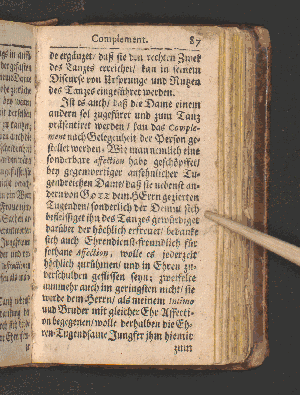 Complement. 87
de ergäntzet/ daß sie den rechten Zweck
des Tantzes erreichet/ kan in seinem
Discurse von Ursprunge und Nutzen
des Tantzes eingeführet werden.
Ist es auch/ daß die Dame einem
andern sol zugeführt und zum Tantz
präsentiret werden/ kan das Comple-
ment nach Gelegenheit der Person ge-
stellet werden. Wie man nemlich eine
sonderbare affection habe geschöpffet/
bey gegenwertiger ansehnlicher Tu-
gendreichen Dame/ daß sie nebenst an-
dern von GOtt dem HErrn gezierten
Tugenden/ sonderlich der Demut sich
befleissiget ihn des Tantzes gewürdiget
darüber der höchlich erfreuet/ bedankt
sich auch Ehrendienst-freundlich für
sothane affection, wolle es jederzeit
höchlich zurühmen/ und in Ehren zu-
verschulden geflissen seyn; zweifele
nunmehr auch im geringsten nicht/ sie
werde dem Herrn/ als meinem intimo
und Bruder mit gleicher Ehr Affecti-
on begegenen/ wolle derhalben die Eh-
ren-Tugendsame Jungfer ihm hiemit
zum